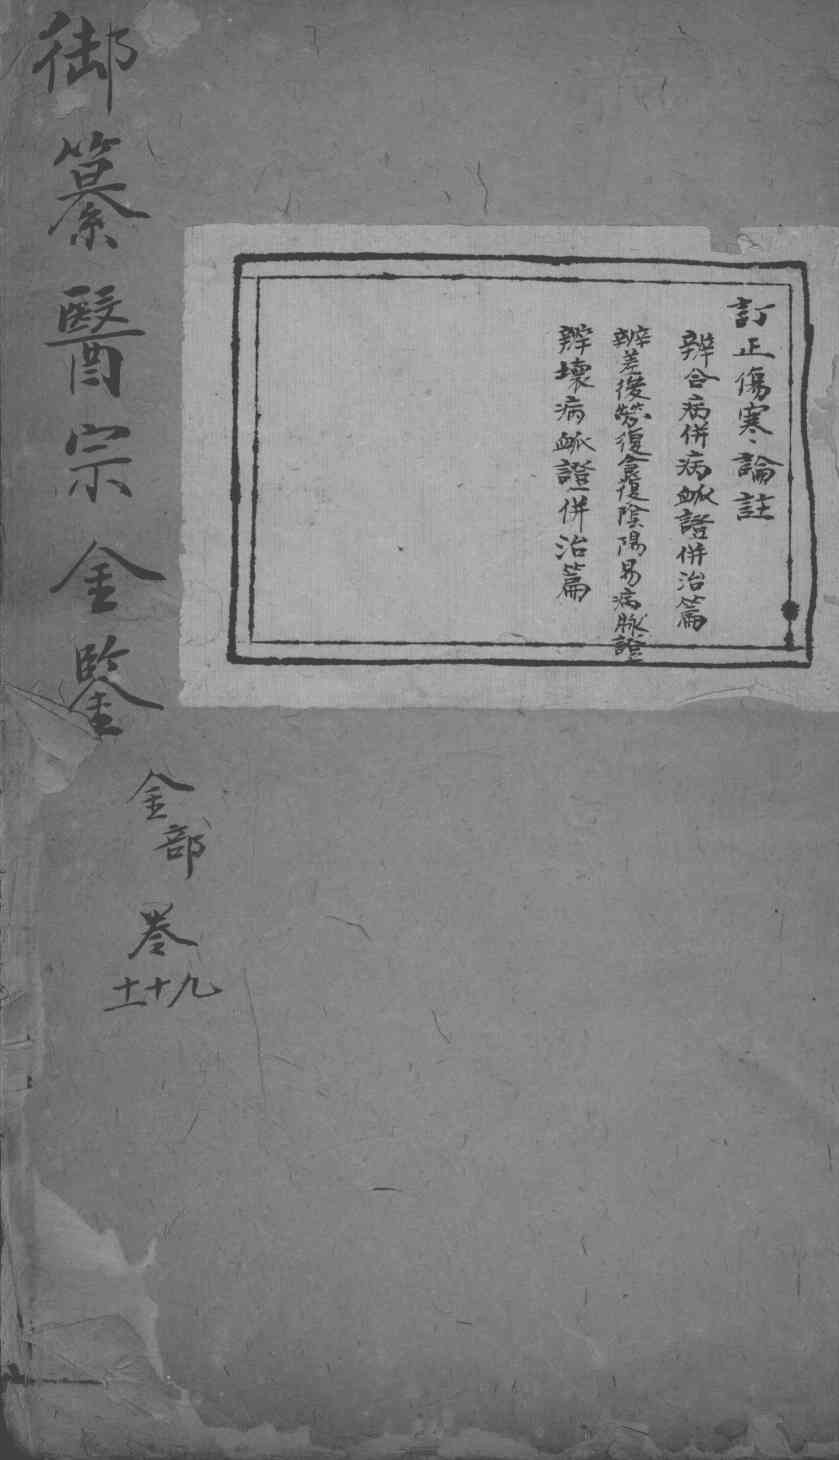 訂正傷寒論註
辨合病併病衇證併治篇
辨差後勞復食復陰陽易病脉證
辨壞病衇證併治篇
御纂醫宗金鑒
金部
卷
九十十一